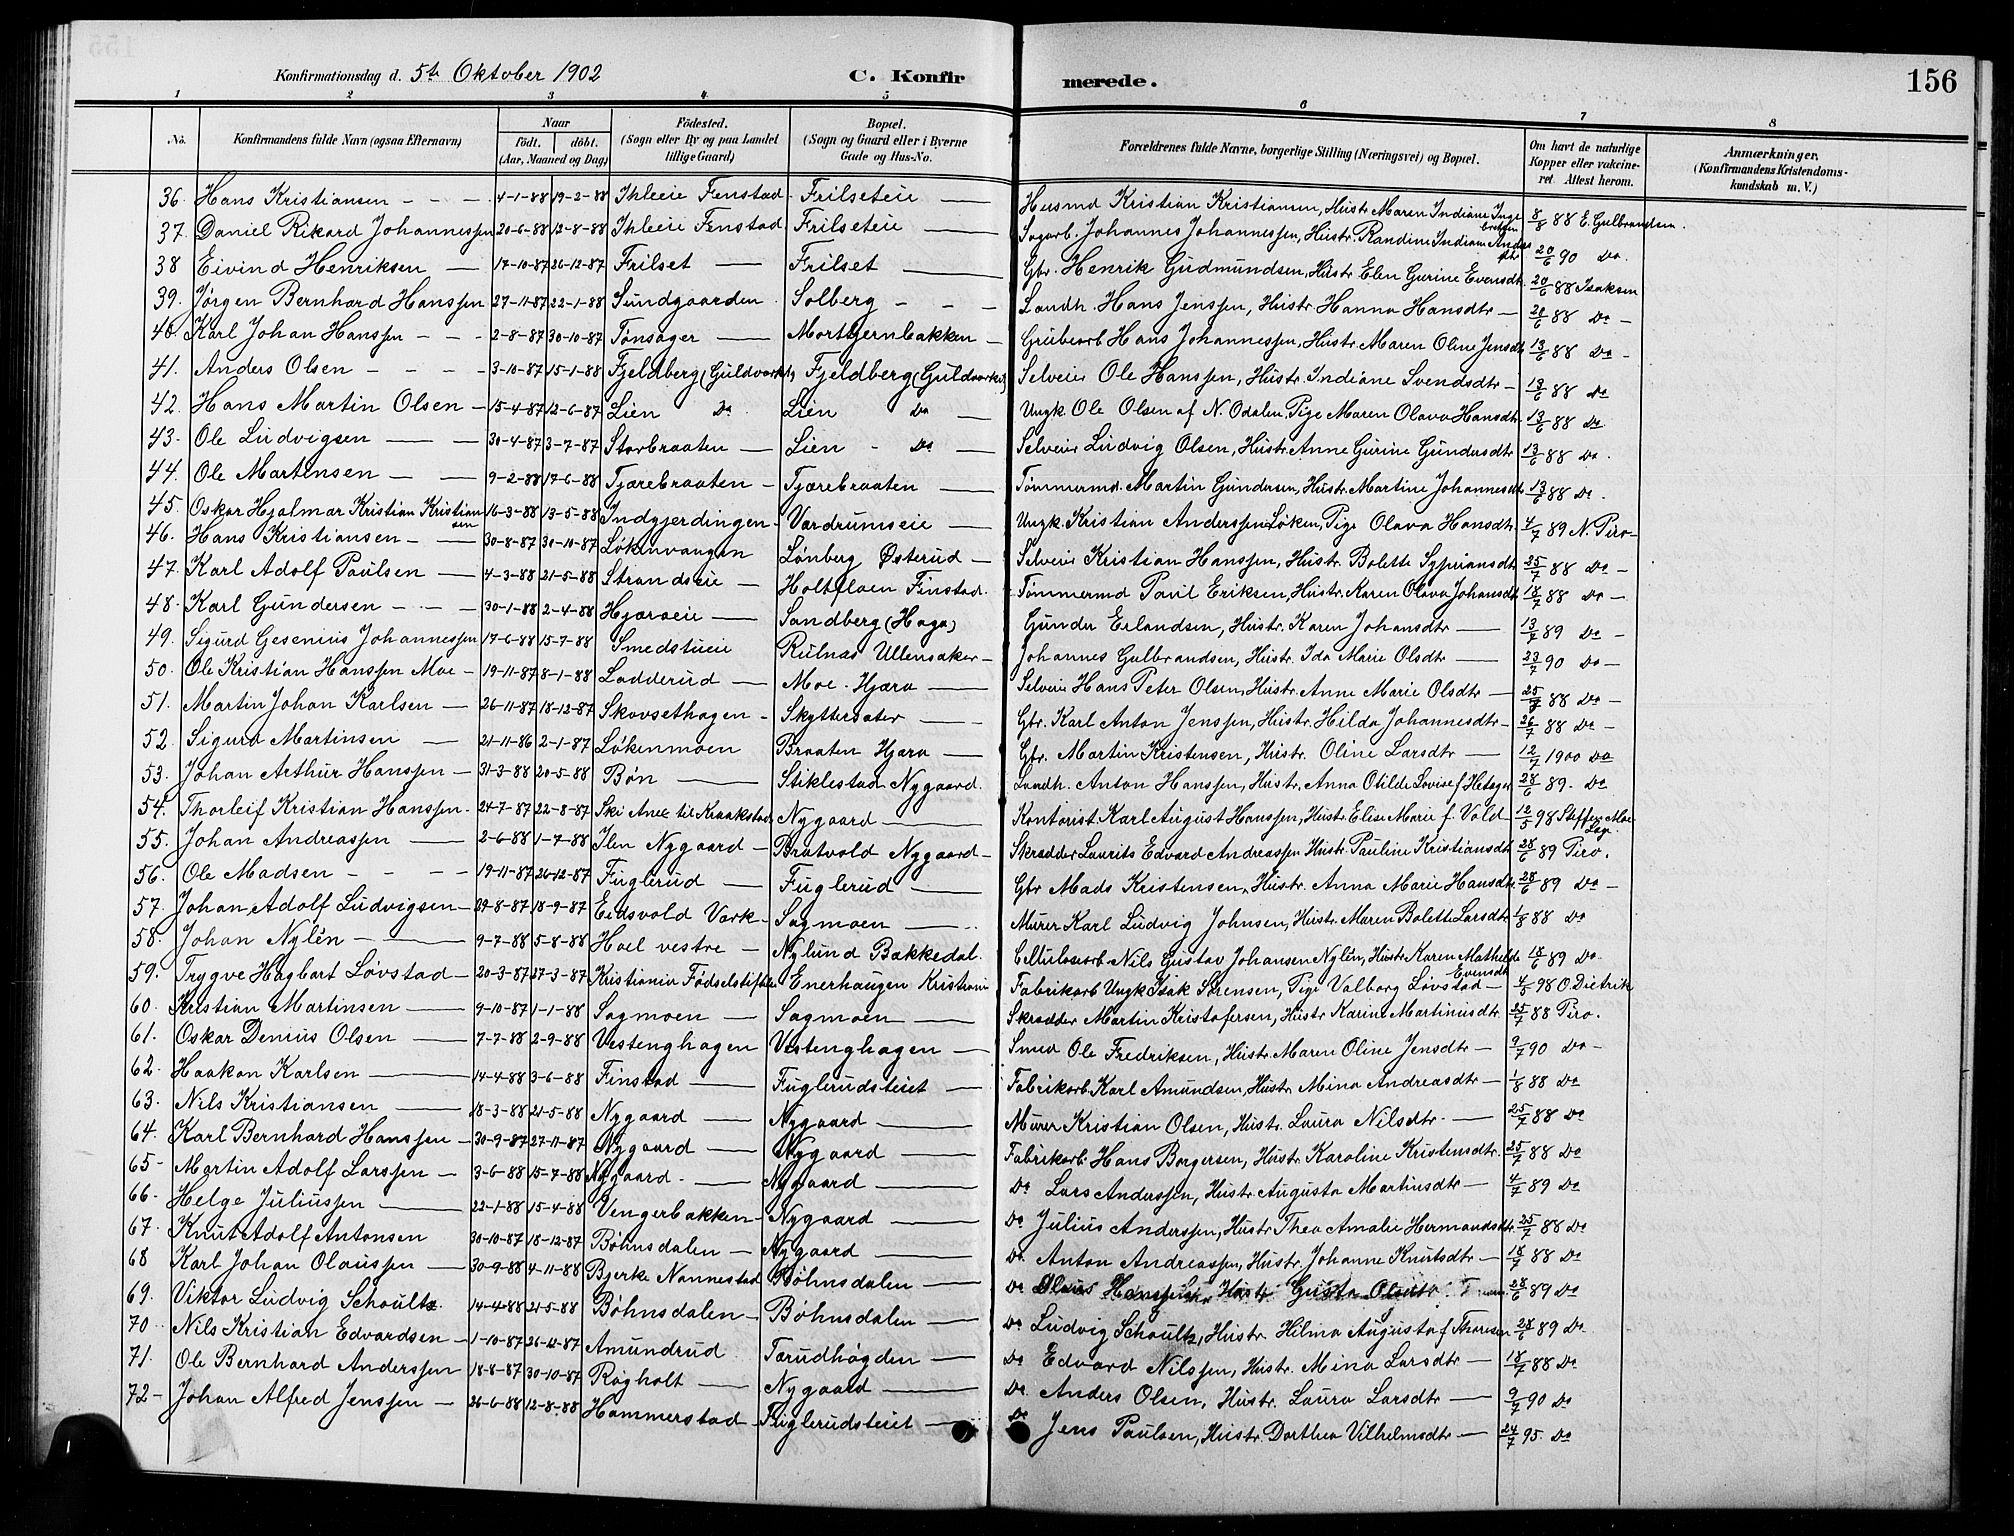 156
Konfirmationsdag d. 5te Oktober 1902
C. Konfirmerede.
1 2 3 4 5 6 7 8
No. Konfirmandens fulde Navn (ogsaa Efternavn) Naar født. døbt. (Aar, Maaned og Dag) Fødested. (Sogn eller By og paa Landet tillige Gaard) Bopæl. (Sogn og Gaard eller i Byerne Gade og Hus-No. Forældrenes fulde Navne, borgerlige Stilling (Næringsvei) og Bopæl. Om havt de naturlige Kopper eller vakcineret. Attest herom. Anmærkninger. (Konfirmandens Kristendomskundskab m. V.)
36. Hans Kristiansen - - - 4-1-88 19-2-88 Ihleeie Fenstad Frilseteie Husmd Kristian Kristiansen, Hustr. Maren Indiane Ingebretsen 8/8 88 E. Gulbrandsen.
37. Daniel Rikard Johannessen 20-6-88 12-8-88 Ihleeie Fenstad Frilseteie Sagarb. Johannes Johannessen, Hustr. Randine Indiane Andersdtr 20/6 90 Do.
38 Eivind Henriksen 17-10-87 26-12-87 Frilset Frilset Gbr. Henrik Gudmundsen, Hustr. Elen Gurine Evensdtr. 20/6 88 Isaksen
39. Jørgen Bernhard Hanssen 27-11-87 22-1-88 Sundgaarden Solberg - - Landh. Hans Jenssen, Hustr. Hanna Hansdtr 20/6 88 Do
40. Karl Johan Hanssen - - - 2-8-87 30-10-87 Tønsager Morttjernbakken Grubearb Hans Johannessen, Hustr. Maren Oline Jensdtr 13/6 88 Do
41. Anders Olsen - - - 3-10-87 15-1-88 Fjeldberg (Guldværket) Fjeldberg (Guldværket) Selveier Ole Hanssen, Hustr. Indiane Svendsdtr 13/6 88 Do
42. Hans Martin Olsen 15-4-87 12-6-87 Lien Do Lien Do Ungk. Ole Olsen af N. Odalen. Pige Maren Olava Hansdtr 13/6 88 Do
43. Ole Ludvigsen 30-4-87 3-7-87 Storbraaten Lien - Do Selveier Ludvig Olsen, Hustr. Anne Gurine Gundersdtr 13/6 88 Do.
44. Ole Martinsen 9-2-88 17-6-88 Tjærebraaten Tjærebraaten Tømmermd. Martin Gundersen, Hustr. Martine Johannesdtr 13/6 88 Do.
45. Oskar Hjalmar Kristian Kristiansen 16-3-88 13-5-88 Indgjerdingen Vardrumseie Ungk. Kristian Anderssen Løken, Pige Olava Hansdtr. 4/7 89 N. Piro
46. Hans Kristiansen 30-8-87 30-10-87 Løkenvangen Lønberg Østerud Selveier Kristian Hanssen, Hustr. Bolette Sypriansdtr 25/7 88 Do
47. Karl Adolf Paulsen 4-3-88 21-5-88 Strandseie Holtfloen Finstad. Tømmermd Paul Eriksen, Hustr. Karen Olava Johansdtr 18/7 88 Do
48. Karl Gundersen - - - 30-1-88 2-4-88 Hjæraeie Sandberg (Haga) Gunder Erlandsen, Hustr. Karen Johansdtr 13/7 89 Do
49. Sigurd Gesenius Johannessen 17-6-88 15-7-88 Smedstueie Rulnæs Ullensaker Johannes Gulbrandsen, Hustr. Ida Marie Olsdtr 23/7 90 Do
50. Ole Kristian Hanssen Moe 19-11-87 8-1-88 Ladderud Moe. Hjæra Selveier Hans Peter Olsen, Hustr. Anne Marie Olsdtr 25/7 88 Do
51. Martin Johan Karlsen 26-11-87 18-12-87 Skovsethagen Skyttersæter Gbr. Karl Anton Jenssen, Hustr. Hilda Johannesdtr 26/7 88 Do
52 Sigurd Martinsen 21-11-86 2-1-87 Løkenmoen Braaten Hjæra Gbr. Martin Kristensen, Hustr. Oline Larsdtr 12/7 1900 Do
53. Johan Arthur Hanssen 31-3-88 20-5-88 Bøn Stiklestad Nygaard. Landh. Anton Hanssen, Hustr. Anna Otilde Lovise f. Hetager 28/6 89. Do
54. Thorleif Kristian Hanssen 24-7-87 22-8-87 Ski Anex til Kraakstad Nygaard Kontorist Karl August Hanssen, Hustr. Elise Marie f. Vold 12/5 98 Steffen Moe Læge
55. Johan Andreassen 2-6-88 1-7-88 Ilen Nygaard Bratvold Nygaard Skrædder Laurits Edvard Andreassen Hustr. Pauline Kristiansdtr 28/6 89 Piro.
56. Ole Madsen - - - 19-11-87 26-12-87 Fuglerud Fuglerud Gbr Mads Kristensen, Hustr. Anna Marie Hansdtr. 28/6 89 Do
57. Johan Adolf Ludvigsen 29-8-87 18-9-87 Eidsvold Værk Sagmoen Murer Karl Ludvig Johnsen, Hustr. Maren Bolette Larsdtr 1/8 88 Do
58. Johan Nylén 9-7-88 5-8-88 Hoel vestre Nylund Bakkedal. Cellulosearb Nils Gustav Johansen Nylén, Hustr. Karen Mathilde Evensdtr 18/6 89 Do
59. Trygve Hagbart Løvstad 20-3-87 27-3-87 Kristiania Fødselstiftelse Enerhaugen Kristiania Fabrikarb Ungk Isak Sørensen, Pige Valborg Løvstad 4/8 98 O Dietrik
60. Kristian Martinsen 9-10-87 1-1-88 Sagmoen Sagmoen Skrædder Martin Kristofersen, Hustr Karine Martinusdtr. 25/7 88 Piro.
61. Oskar Denius Olsen 7-7-88 2-9-88 Vestenghagen Vestenghagen Smed Ole Fredriksen, Hustr. Maren Oline Jensdtr 9/7 90 Do
62. Haakon Karlsen 14-4-88 3-6-88 Finstad Fuglerudsteiet Fabrikarb. Karl Amundsen, Hustr Mina Andreasdtr 1/8 88 Do
63. Nils Kristiansen 18-3-88 21-5-88 Nygaard Nygaard Murer Kristian Olsen, Hustr. Laura Nilsdtr. 25/7 88 Do
64. Karl Bernhard Hanssen 30-9-87 27-11-87 Nygaard Nygaard Fabrikarb Hans Borgersen, Hustr Karoline Kristensdtr. 25/7 88 Do
65 Martin Adolf Larssen 3-6-88 15-7-88 Nygaard Nygaard Do Lars Anderssen, Hustr Augusta Martinsdtr 4/7 89 Do
66. Helge Juliussen 22-1-88 15-4-88 Vengerbakken Nygaard Do Julius Anderssen, Hustr Thea Amalie Hermandsdtr. 25/7 88 Do
67. Knut Adolf Antonsen 30-10-87 18-12-87 Bøhnsdalen Nygaard Do. Anton Andreassen, Hustr. Johanne Knutsdtr 18/7 88 Do
68 Karl Johan Olaussen 30-9-88 4-11-88 Bjerke Nannestad Bøhnsdalen Do Olaus Hanssen Hustr Gusta Olsdtr 28/6 89 Do
69. Viktor Ludvig Schoultz. 14-4-88 21-5-88 Bøhnsdalen Bøhnsdalen Do Ludvig Schoultz, Hustr Hilma Augusta f. Thoresen 28/6 89 Do
70. Nils Kristian Edvardsen 1-10-87 26-12-87 Amundrud Tærudhøgden Do Edvard Nilssen, Hustr. Mina Larsdtr 18/7 88 Do
71. Ole Bernhard Anderssen 18-8-87 30-10-87 Røgholt Nygaard Do. Anders Olsen, Hustr. Laura Larsdtr 9/7 90 Do
72 Johan Alfred Jenssen 26-6-88 12-8-88 Hammerstad Fuglerudsteiet Do Jens Paulsen, Hustr. Dorthea Vilhelmsdtr 24/7 95. Do